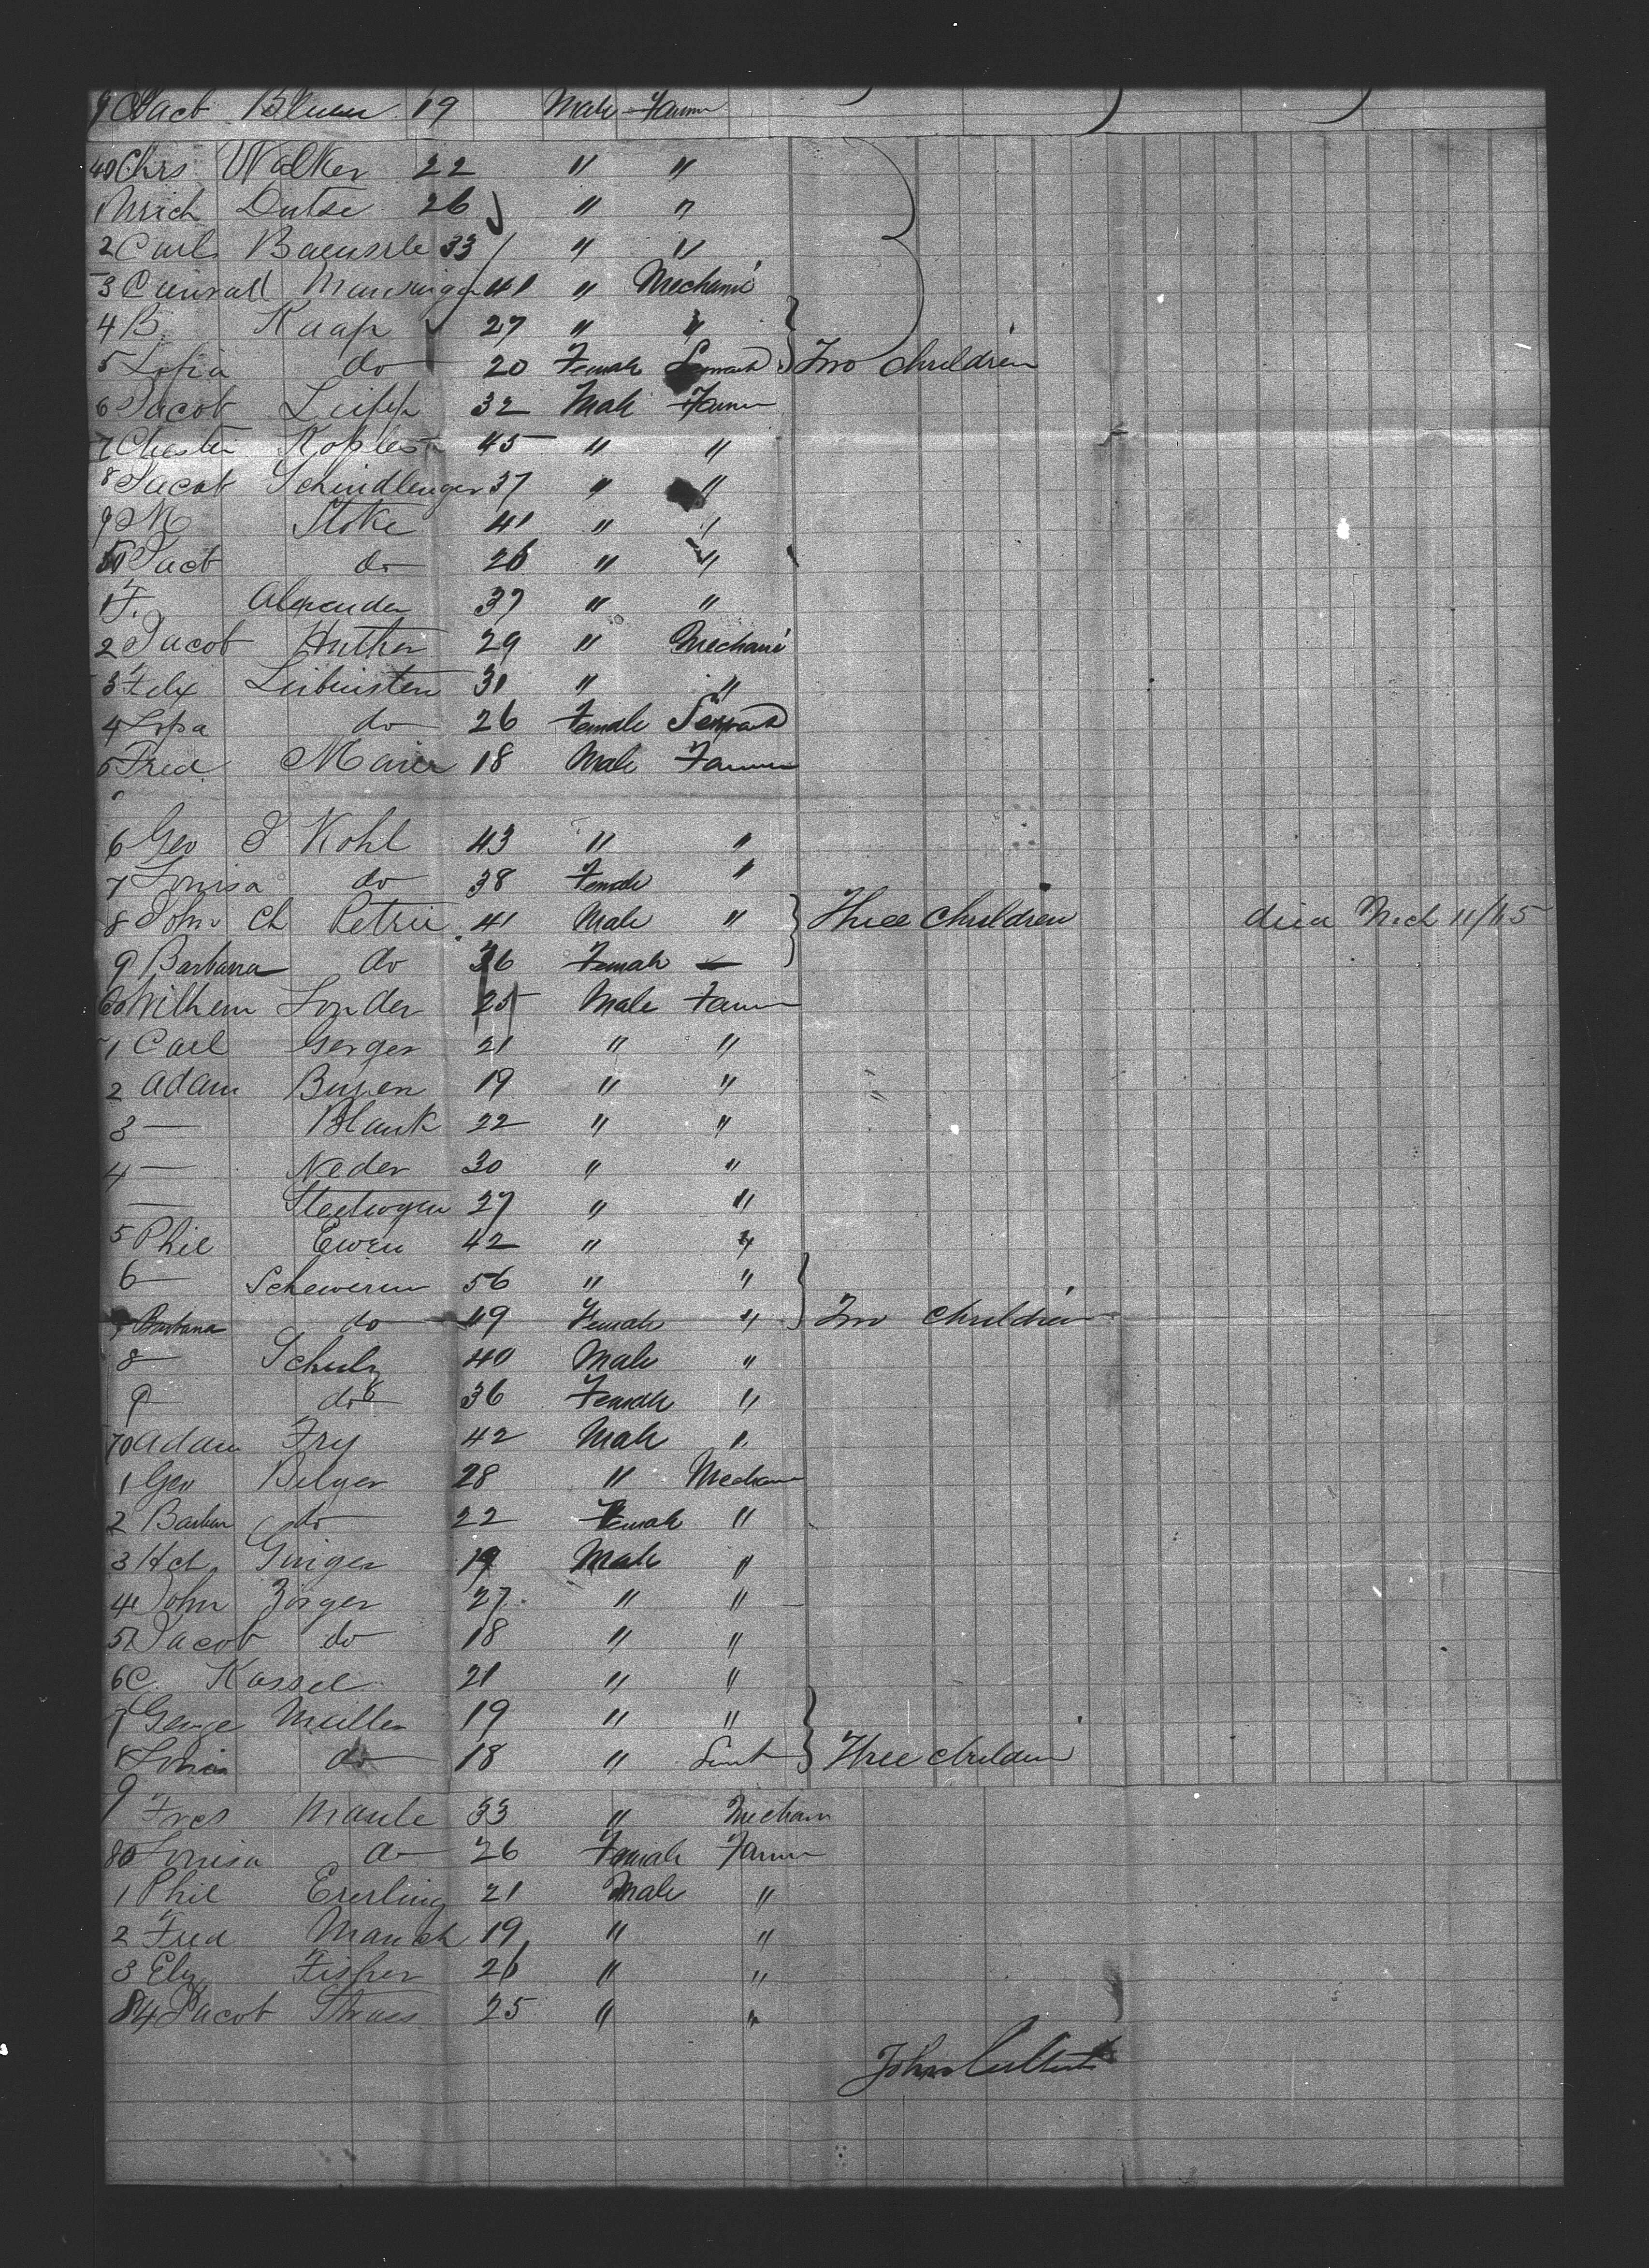 9 Jacb Blum 19 Male Farm
40 Chrs Walker 22 " "
1 Ulrich Dutse 26 " "
2 Carl Baeuserle 33 " "
3 Cunrad 41 " Mechani
4 B. Kaap 27 " "
5 Sofia do 20 Female Servant Two Children
6 Jacob Leipp 32 Male Farm
7 45 " "
8 Jacob Schindlenger 37 " "
9 M Stoke 41 " "
50 Jacb do 26 " "
1 F. Alexander 37 " "
2 Jacob Huther 29 " Mechani
3 Felix Leibinsten 31 " "
4 Sofia do 26 Female Servant
5 Fred Maier 18 Male Farm
6 Geo J Kohl 43 " "
7 Louisa do 38 Female "
8 John Ch Petrie 41 Male " Three Children died Mch 11/65
9 Barbara do 36 Female —
60 Wilhem Sonder 25 Male Farm
1 Carl Gerger 21 " "
2 Adam Buyen 19 " "
3 — Blank 22 " "
4 — Neder 30 " "
— 27 " "
5 Phil Ewen 42 " "
6 — Scheweren 56 " "
7 Barbara do 49 Female " Two Children
8 — Schulz 40 Male "
9 — do 36 Female "
70 Adam Fry 42 Male "
1 Geo Belger 28 " Mechan
2 Barbar do 22 Female "
3 Hch Ginger 19 Male "
4 John Zorger 27 " "
5 Jacob do 18 " "
6 C. Kassel 21 " "
7 George Muller 19 " "
8 Louisa do 18 " Servt Three Children
9 Fres Maule 33 " Mechan
80 Louisa do 26 Female Farm
1 Phil Ererling 21 Male "
2 Fred Mauch 19 " "
3 Elz Fisher 26 " "
84 Jacob Strass 25 " "
John